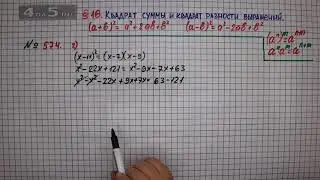 4 по 5.com
§ 16. Квадрат суммы и квадрат разности выражений.
(a+b)² = a²+2ab+b² (a-b)² = a²-2ab+b²
№ 574. 2)
(aⁿ)ᵐ = aⁿᵐ
aⁿaᵐ = aⁿ⁺ᵐ
(x-11)² = (x-7)(x-9)
x²-22x+121 = x²-9x-7x+63
x²-x²-22x+9x+7x= 63-121